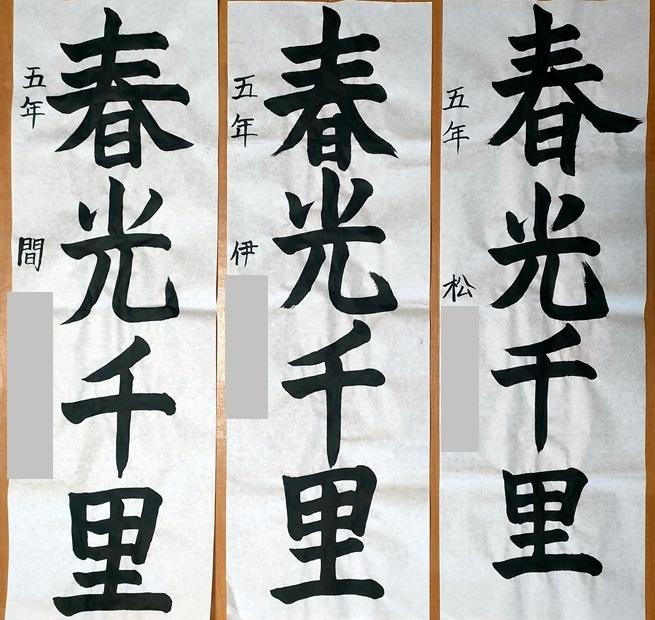 春光千里
五年 松
春光千里
五年 伊
春光千里
五年 間